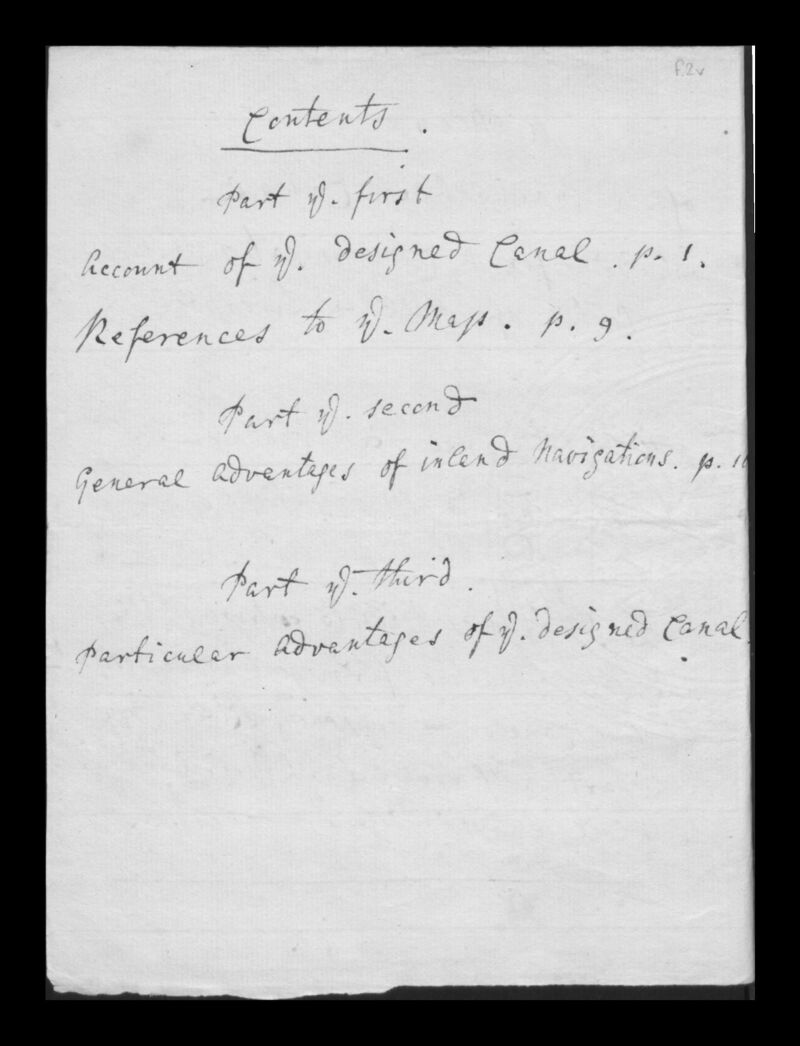 f.2v
Contents.
Part ye. first
Account of ye. designed Canal. p. 1.
References to ye. Map. p. 9.
Part ye. second
General advantages of inland Navigations. p.
Part ye. third.
particular advantages of ye. designed Canal.